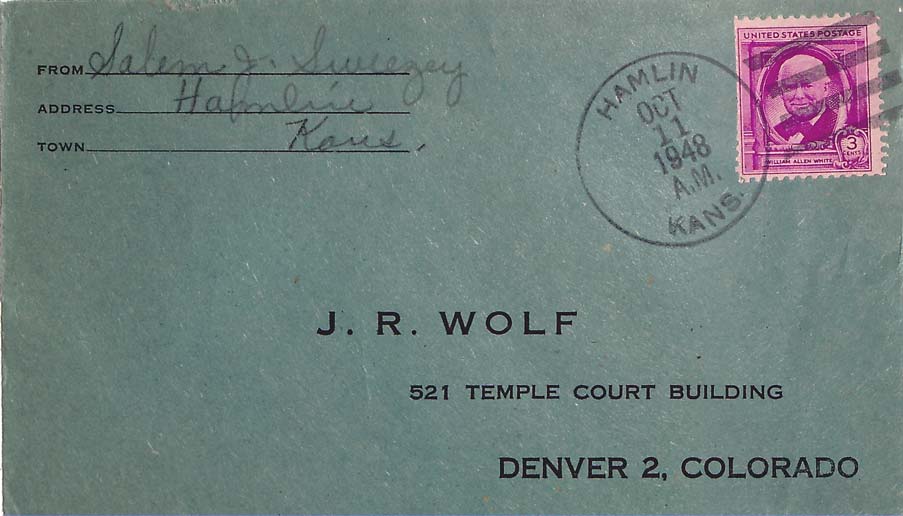 FROM Salem J. Sweezey
ADDRESS Hamline
TOWN Kans.
HAMLIN
OCT
11
1948
A.M.
KANS.
UNITED STATES POSTAGE
WILLIAM ALLEN WHITE
3
CENTS
J. R. WOLF
521 TEMPLE COURT BUILDING
DENVER 2, COLORADO